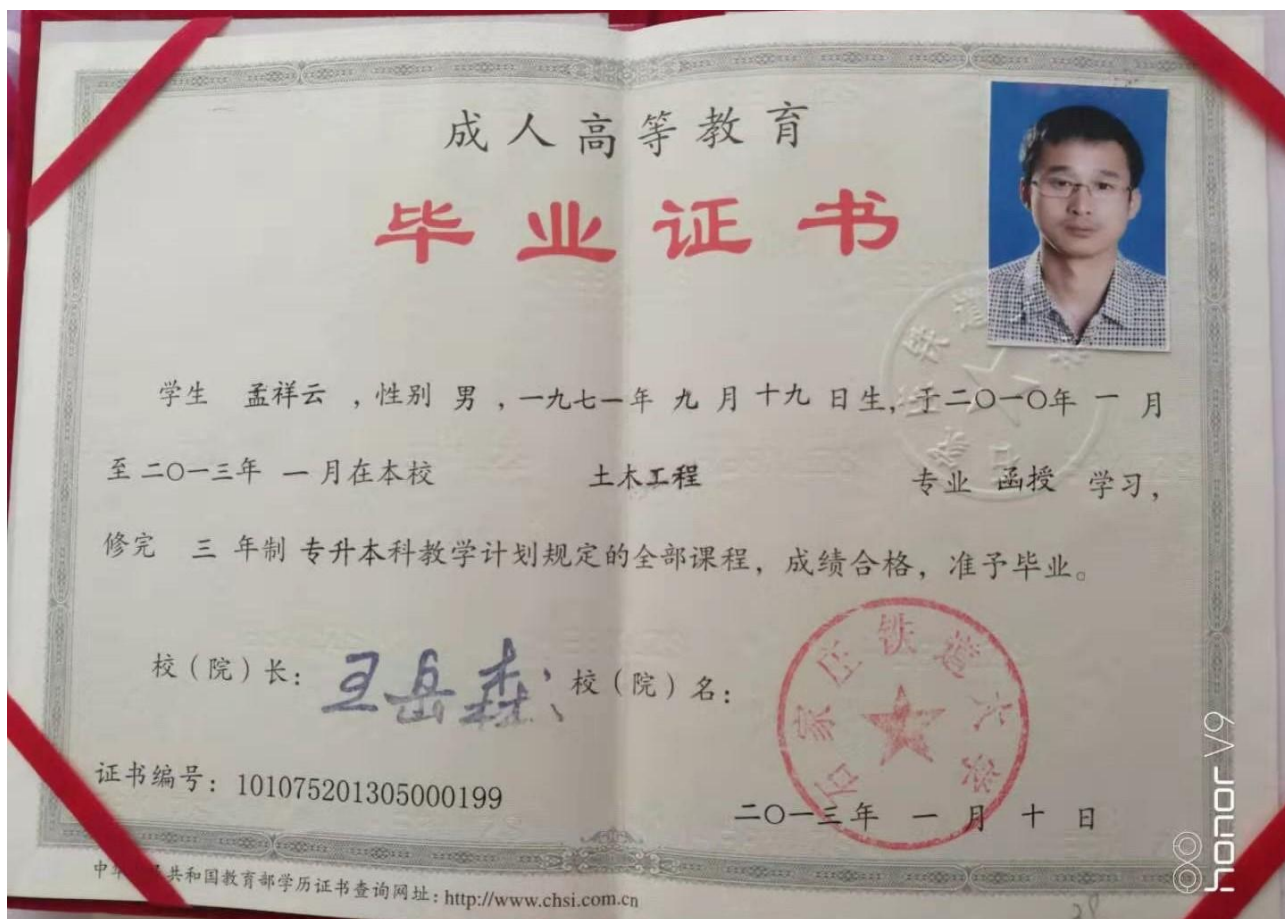 成人高等教育
毕业证书
学生 孟祥云 ，性别 男 ，一九七一年 九 月 十九 日生，于二〇一〇年 一 月
至 二〇一三年 一 月在本校 土木工程 专业 函授 学习，
修完 三 年制 专升本科教学计划规定的全部课程，成绩合格，准予毕业。
校（院）长： 王岳森 校（院）名：
石家庄铁道大学
证书编号：101075201305000199
二〇一三年 一 月 十 日
中华 共和国教育部学历证书查询网址：http://www.chsi.com.cn
28
honor V9